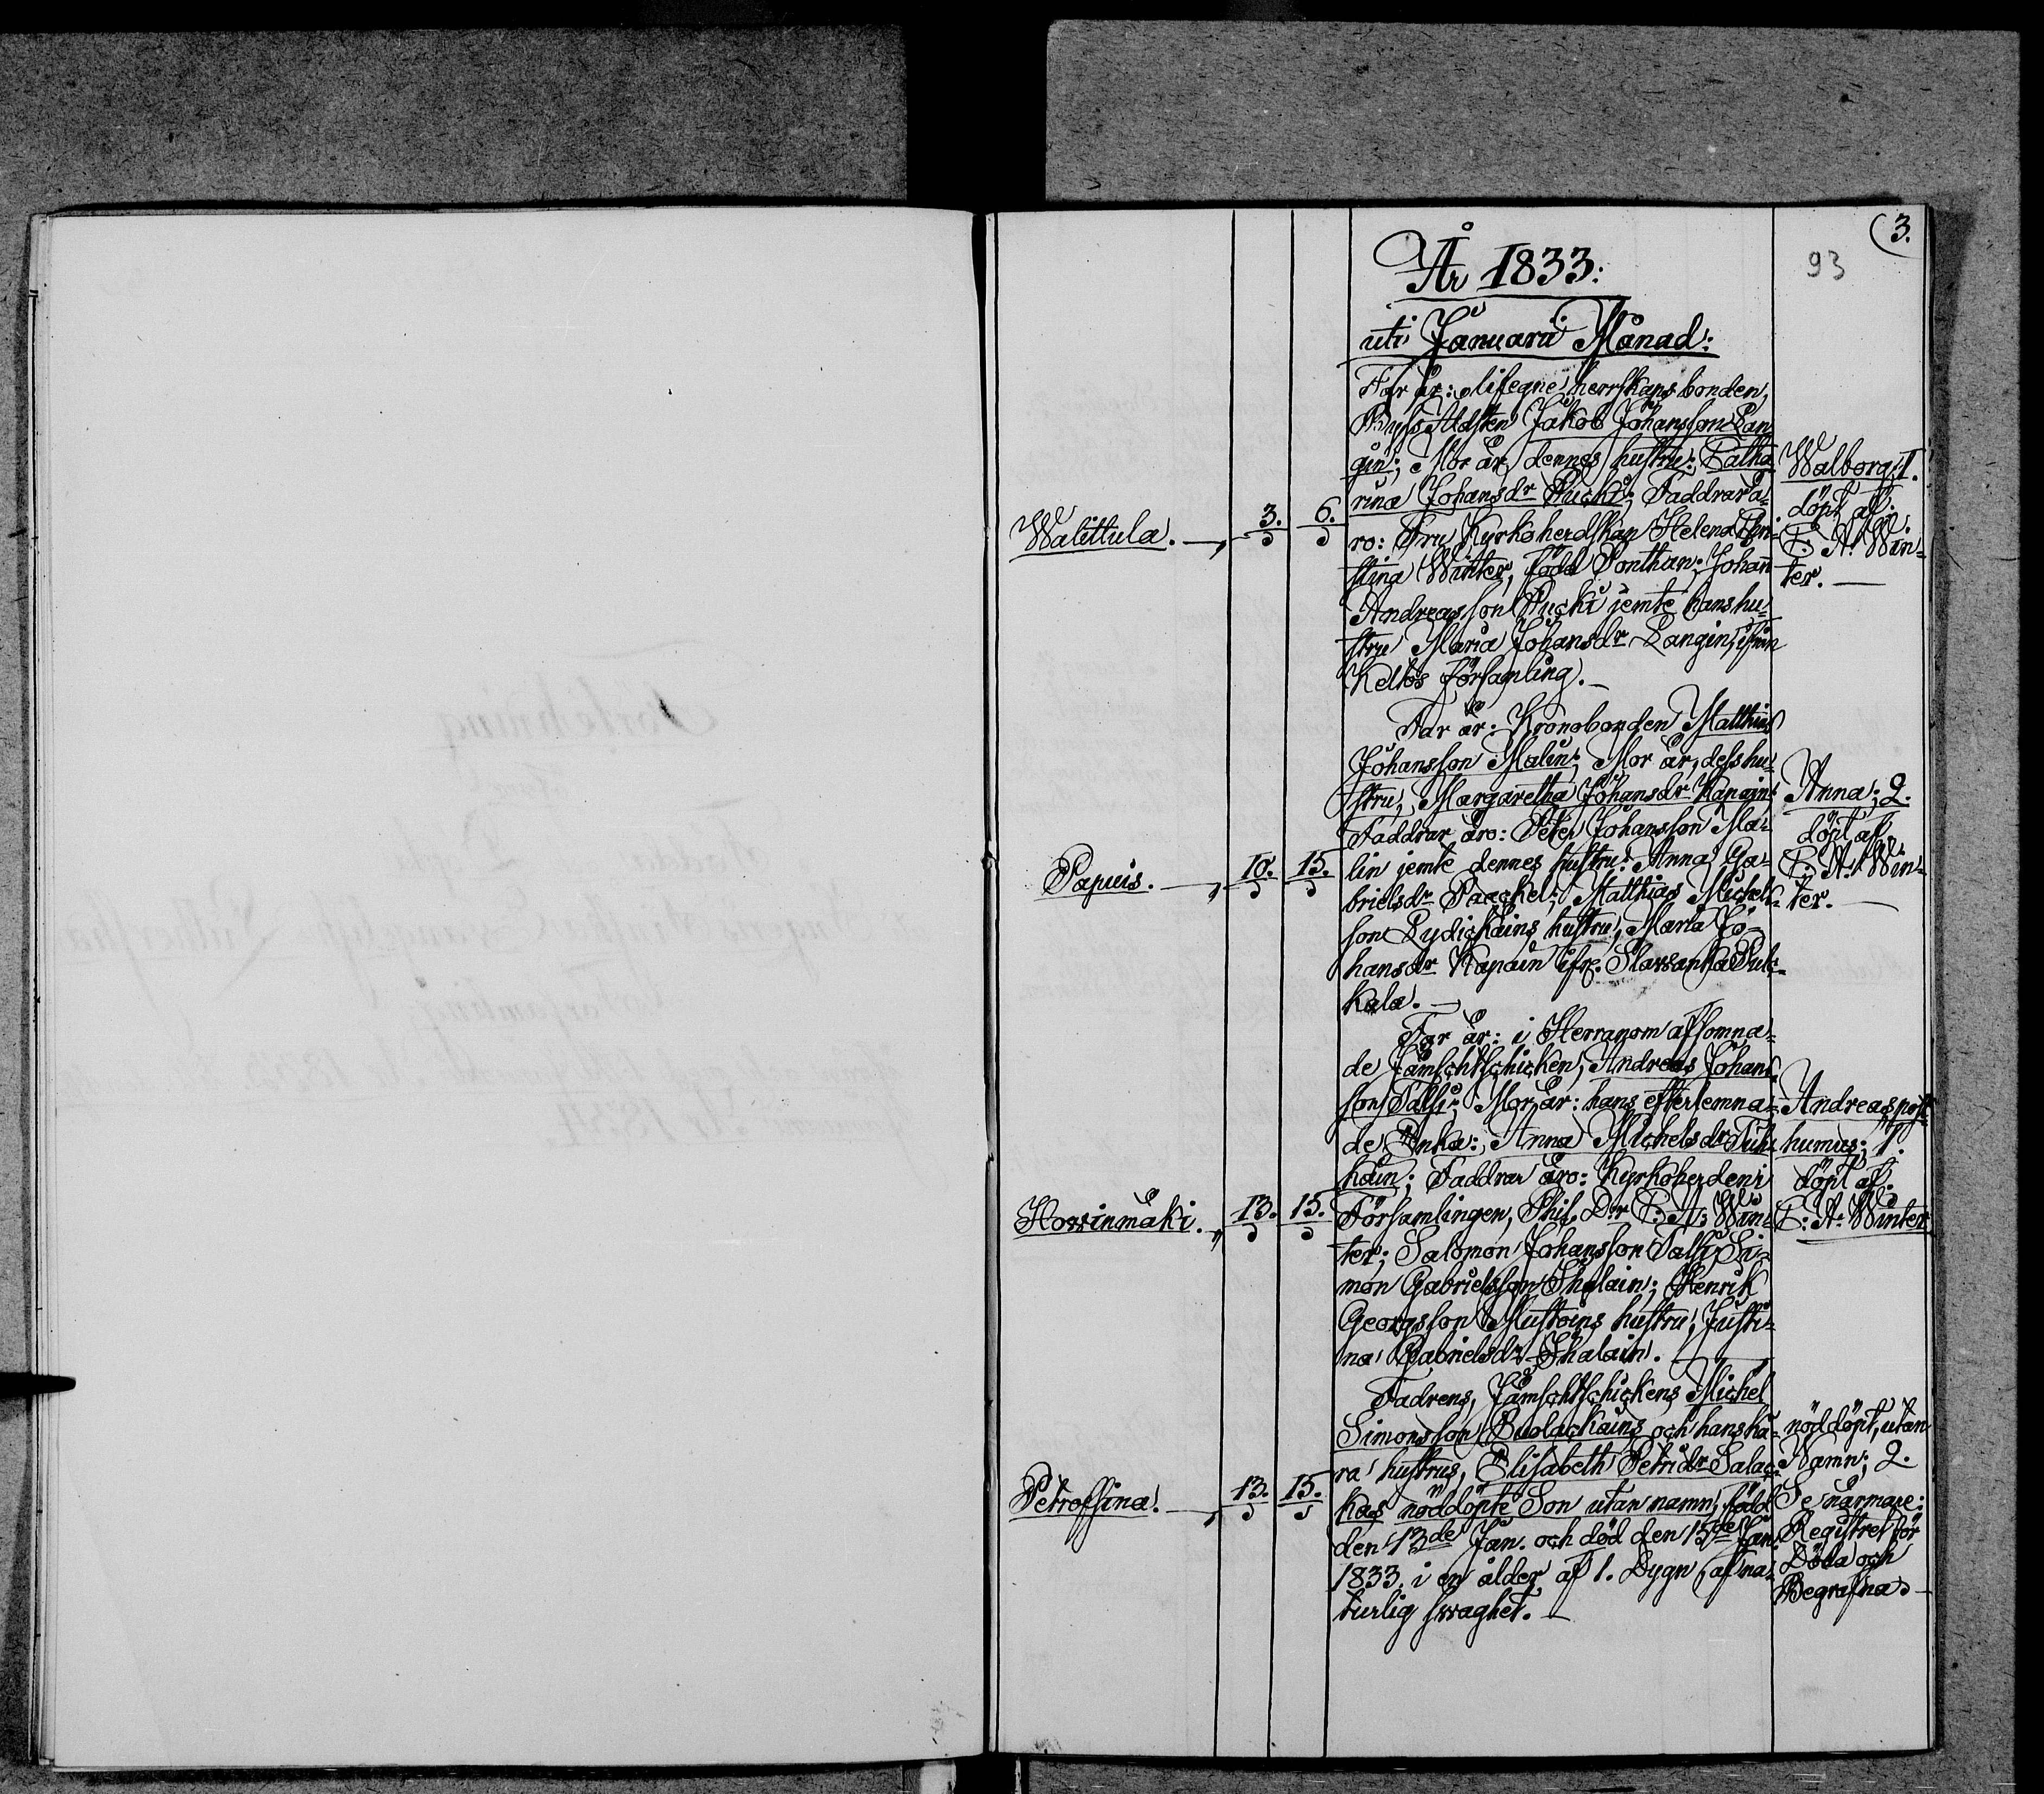 (3.
93
År 1833:
uti Januarii Månad:
Walittula. 3. 6.
Far är: lifegne herrskans bonden,
Jakob Johansson Lan-
gin; Mor är dennes hustru: Catha
rina Johansdr Pucki; Faddrar ä-
ro: Fru Kyrkoherdskan Helena Chri-
stina Winter, född Ponthan; Johan
Andreasson Pucki jemte hans hu-
stru Maria Johansdr Langin, ifrån
Keltos församling.
Walborg; 1.
döpt af.
C: A: Win-
ter.
Papuis. 10. 15.
Far är: Kronobonden Matthias
Johansson Malin; Mor är, dess hu-
stru, Margaretha Johansdr Kapain;
Faddrar äro: Peter Johansson Ma-
lin jemte dennes hustru: Anna Ga-
brielsdr Paackel; Matthias Michels-
son Pydickäins hustru, Maria Jo-
hansdr Kapain ifr. Slawanka Pul-
kala.
Anna; 2.
döpt af
C: A: Win-
ter.
Howinmäki. 13. 15.
Far är: i Herranom afsomna-
de Jämschtschicken, Andreas Johans
son Talsi; Mor är: hans efterlemna-
de Enka: Anna Michelsdr Tuh-
käin; Faddrar äro: Kyrkoherden i
Församlingen, Phil. Dr C: A: Win-
ter; Salomon Johansson Talsi; Si-
mon Gabrielsson Ihalain; Henrik
Georgsson Mustoins hustru, Justi-
na Gabrielsdr Ihalain.
Andreas post
humus; 1.
döpt af.
C: A: Winter
Petrossina. 13. 15.
Fadrens, Jämschtschickens Michel
Simonsson Buolackains och hans kä-
ra hustrus, Elisabeth Petridr Salac-
kas nöddöpte Son utan namn, född
den 13de Jan. och död den 15de Jan.
1833. i en ålder af 1. Dygn, af na-
turlig swaghet.
nöddöpt, utan
Namn; 2.
Se närmare:
Registret för
Döda och
Begrafna.